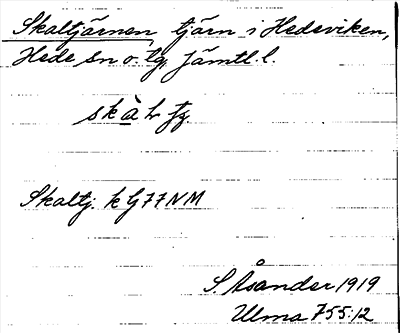 Skaltjärnen, tjärn i Hedeviken,
Hede sn o. tg, Jämtl. l.
Skaltj. k G77NM
S. Åsander 1919
Ulma 755:12